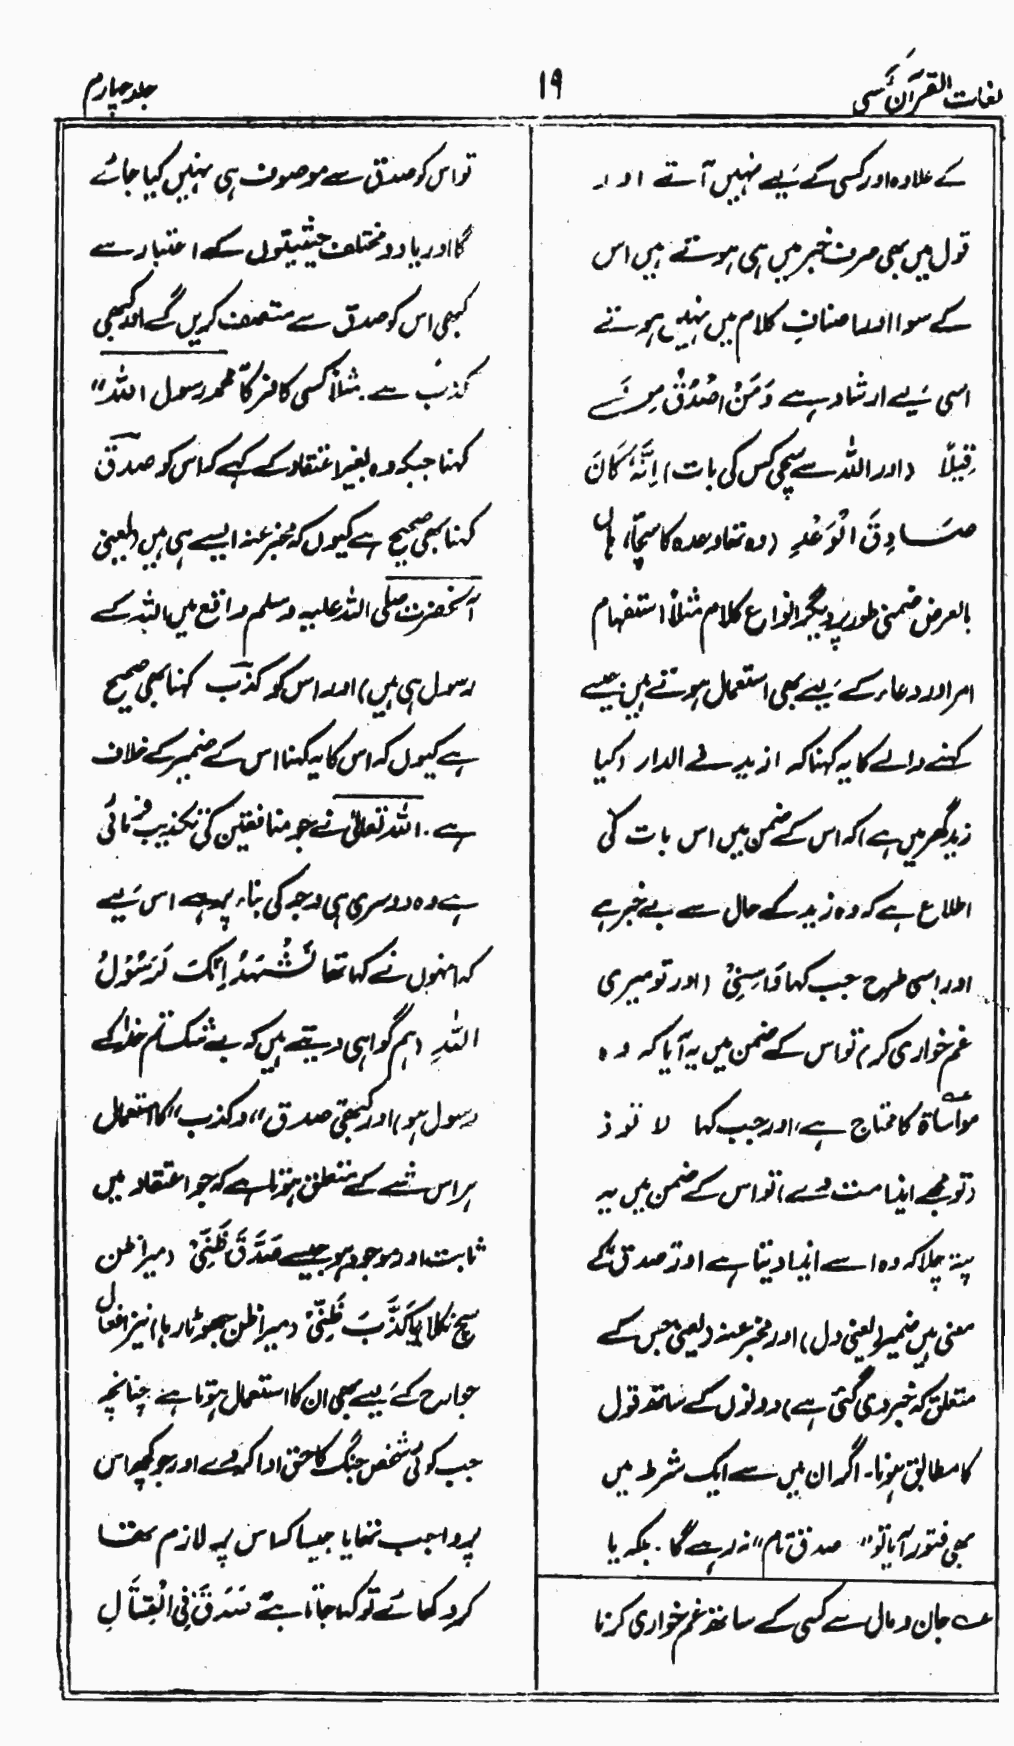 لغات القرآن سی
۱۹
جلد چہارم
کے علاوہ اور کسی کے لیے نہیں آتے اور
قول میں بھی صرف خبر میں ہی ہوتے ہیں اس
کے سوا اور اصناف کلام میں نہیں ہوتے
اسی لیے ارشاد ہے وَمَنْ اَصْدَقُ مِنَ
قِیْلًا (اور اللہ سے سچی کس کی بات) اِنَّہٗ کَانَ
صَادِقَ الْوَعْدِ (وہ تھا وعدہ کا سچا) ہاں
بالعرض ضمنی طور پر دیگر انواع کلام مثلاً استفہام
امر اور دعاء کے لیے بھی استعمال ہوتے ہیں جیسے
کہنے والے کا یہ کہنا کہ ازید فے الدار (کیا
زید گھر میں ہے) کہ اس کے ضمن میں اس بات کی
اطلاع ہے کہ وہ زید کے حال سے بے خبر ہے
اور اسی طرح جب کہا وَاسِنِیْ (اور تو میری
غم خواری کر) تو اس کے ضمن میں یہ آیا کہ وہ
مواساۃ کا محتاج ہے، اور جب کہا لا توذ
(تو مجھے ایذا مت دے) تو اس کے ضمن میں یہ
پتہ چلا کہ وہ اسے ایذا دیتا ہے اور صدق کے
معنی ہیں ضمیر (یعنی دل) اور مخبر عنہ (یعنی جس کے
متعلق کہ خبر دی گئی ہے) دونوں کے ساتھ قول
کا مطابق ہونا۔ اگر ان میں سے ایک شرط میں
بھی فتور آیا تو "صدق تام" نہ رہے گا۔ بلکہ یا
عہ جان و مال سے کسی کے ساتھ غم خواری کرنا
تو اس کو صدق سے موصوف ہی نہیں کیا جائے
گا اور یا دو مختلف حیثیتوں کے اعتبار سے
کبھی اس کو صدق سے متصف کریں گے اور کبھی
کذب سے۔ مثلاً کسی کافر کا محمد رسول اللہ"
کہنا جبکہ وہ بغیر اعتقاد کے کہے کہ اس کو صدق
کہنا بھی صحیح ہے کیوں کہ مخبر عنہ ایسے ہی ہیں (یعنی
آنحضرت صلی اللہ علیہ وسلم واقع میں اللہ کے
رسول ہی ہیں) اور اس کو کذب کہنا بھی صحیح
ہے کیوں کہ اس کا یہ کہنا اس کے ضمیر کے خلاف
ہے۔ اللہ تعالیٰ نے جو منافقین کی تکذیب فرمائی
ہے وہ دوسری ہی وجہ کی بناء پر ہے اس لیے
کہ انہوں نے کہا تھا نَشْہَدُ اِنَّکَ لَرَسُوْلُ
اللہِ (ہم گواہی دیتے ہیں کہ بے شک تم خدا کے
رسول ہو) اور کبھی صدق" و کذب" کا استعمال
ہر اس شے کے متعلق ہوتا ہے کہ جو اعتقاد میں
ثابت اور موجود ہو جیسے صَدَّقَ ظَنِّیْ (میرا ظن
سچ نکلا) یا کَذَّبَ ظَنِّیْ (میرا ظن جھوٹا رہا) نیز افعال
جوارح کے لیے بھی ان کا استعمال ہوتا ہے چنانچہ
جب کوئی شخص جنگ کا حق ادا کر دے اور جو کچھ اس
پر واجب تھا یا جیسا کہ اس پر لازم تھا
کر دکھائے تو کہا جاتا ہے صَدَقَ فِی الْقِتَالِ